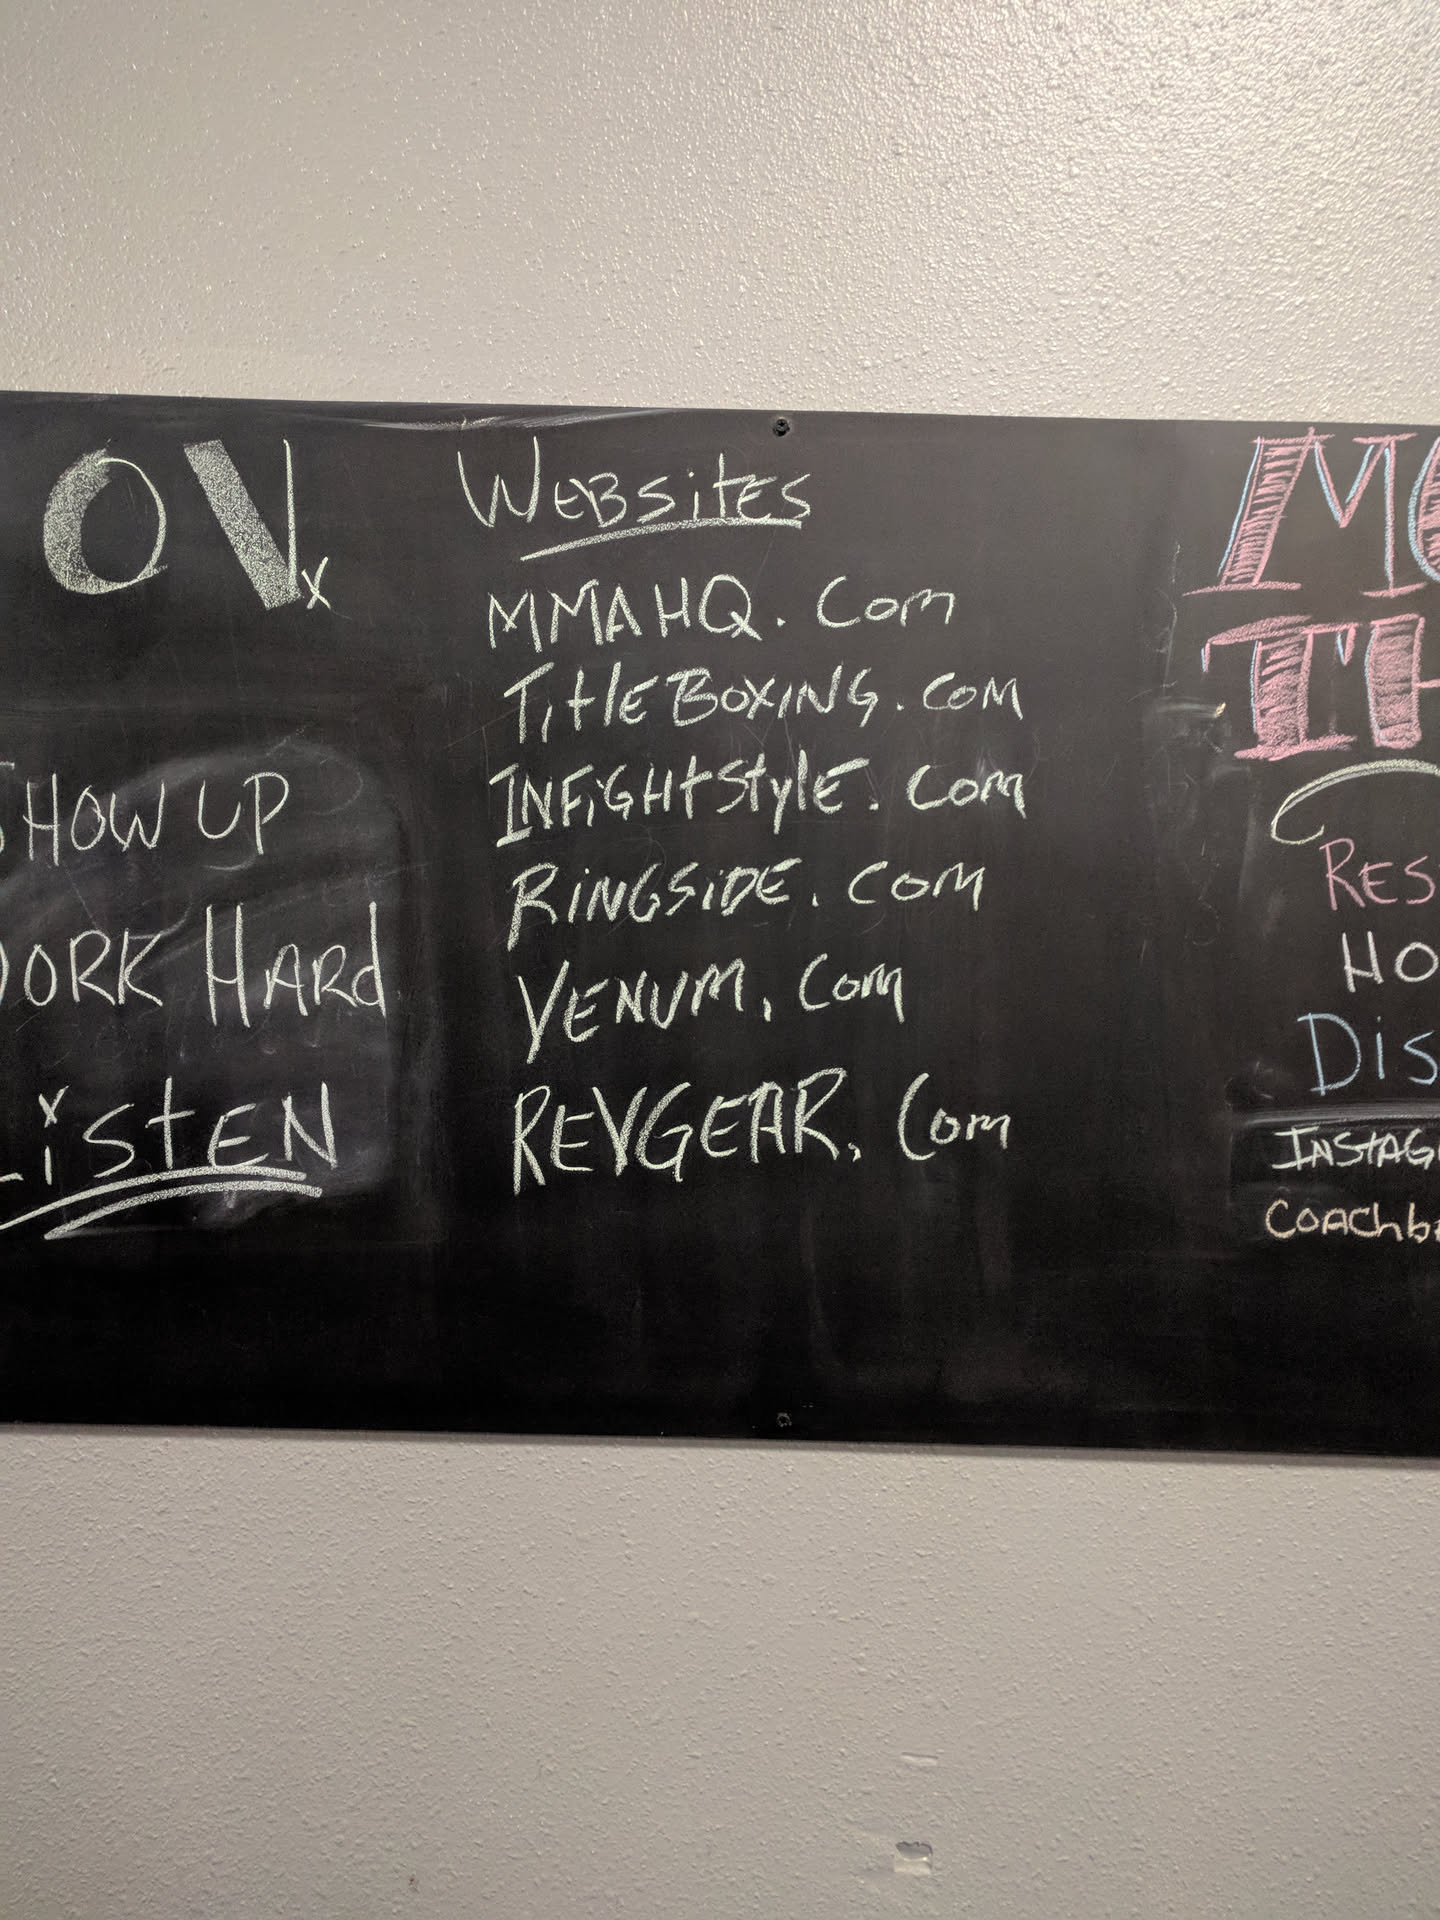 OV
SHOW UP
WORK HARd
LiStEN
WEBSitES
MMAHQ.Com
TitleBOXING.COM
INFiGHtStylE.COM
RiNGSiDE.COM
VENUM.COM
REVGEAR.Com
MO
TH
RES
HO
DiS
INSTAG
COAChb